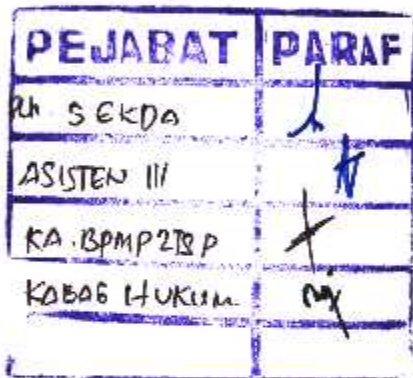 PEJABAT PARAF
Plh SEKDA
ASISTEN III
KA.BPMP2TSP
KABAG HUKUM